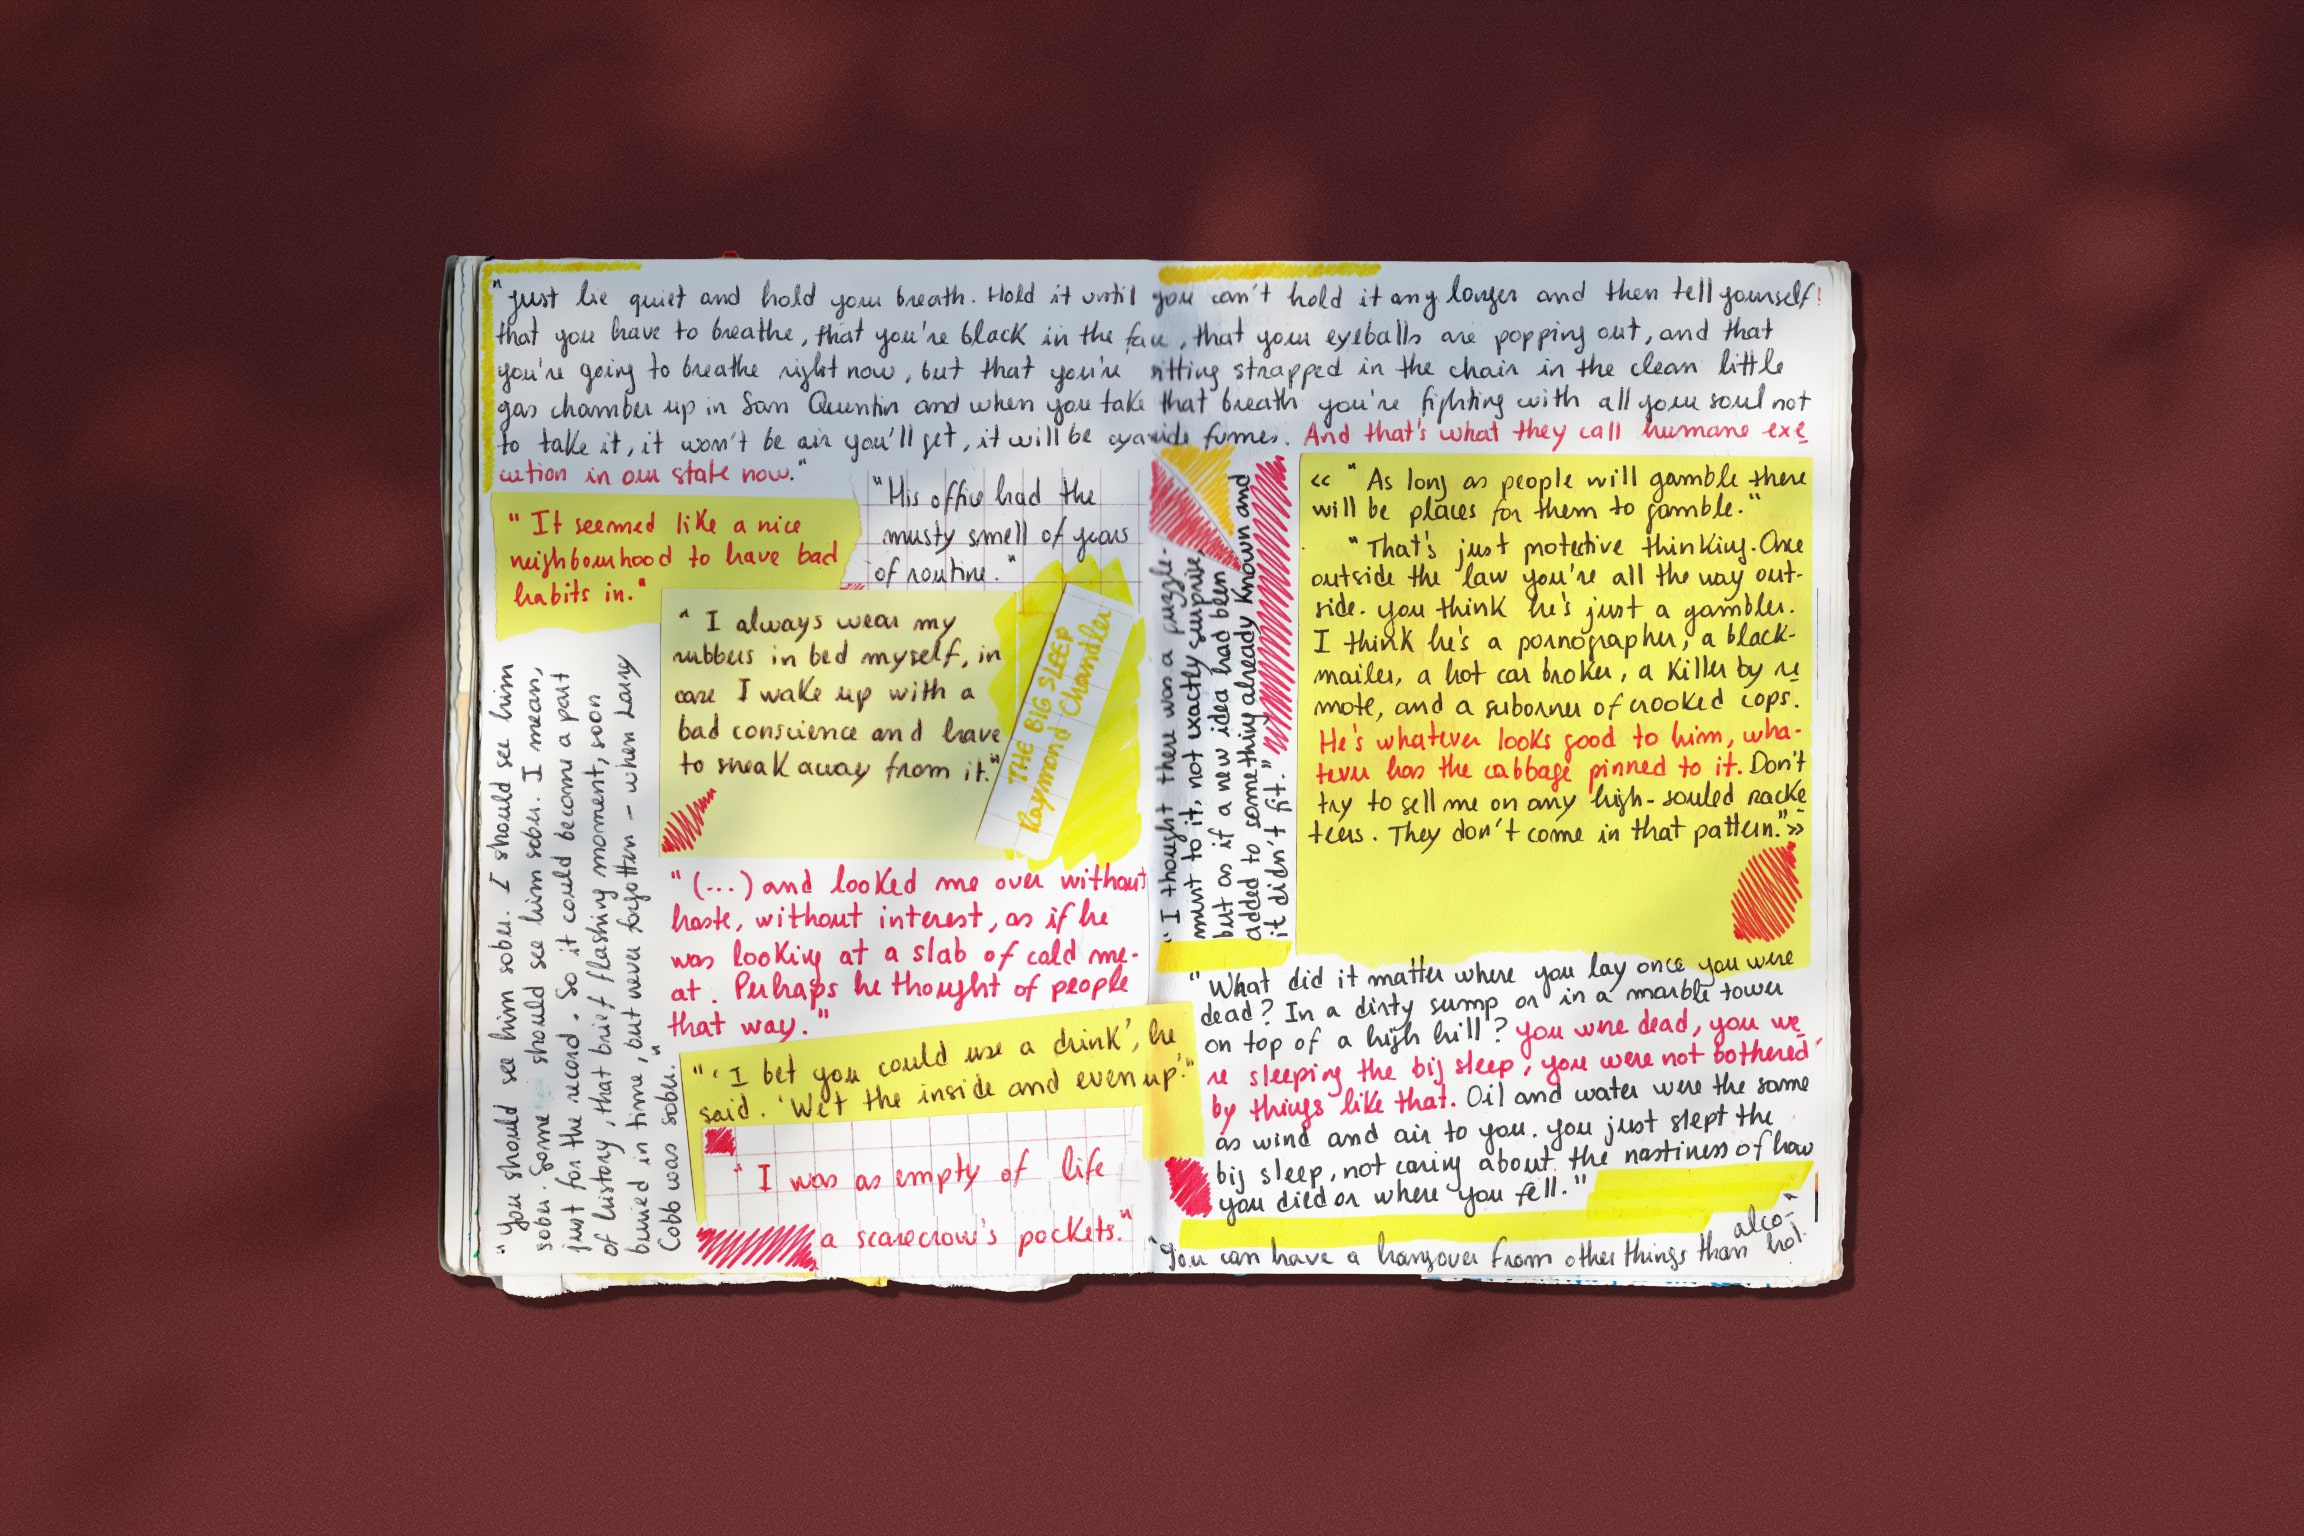 "Just lie quiet and hold your breath. Hold it until you can't hold it any longer and then tell yourself!
that you have to breathe, that you're black in the face, that your eyeballs are popping out, and that
you're going to breathe right now, but that you're sitting strapped in the chair in the clean little
gas chamber up in San Quentin and when you take that breath you're fighting with all your soul not
to take it, it won't be air you'll get, it will be cyanide fumes. And that's what they call humane exe
cution in our state now."
"It seemed like a nice
neighbourhood to have bad
habits in."
"His office had the
musty smell of years
of routine."
"I always wear my
rubbers in bed myself, in
case I wake up with a
bad conscience and have
to sneak away from it."
THE BIG SLEEP
Raymond Chandler
"You should see him sober. I should see him
sober. Some should see him sober. I mean,
just for the record. So it could become a part
of history, that brief flashing moment, soon
buried in time, but never forgotten – when Larry
Cobb was sober."
"(...) and looked me over without
haste, without interest, as if he
was looking at a slab of cold me-
at. Perhaps he thought of people
that way."
"'I bet you could use a drink', he
said. 'Wet the inside and even up'."
"I was as empty of life
a scarecrow's pockets."
"I thought there was a puzzle-
ment to it, not exactly surprise,
but as if a new idea had been
added to something already known and
it didn't fit."
<< "As long as people will gamble there
will be places for them to gamble."
"That's just protective thinking. Once
outside the law you're all the way out-
side. You think he's just a gambler.
I think he's a pornographer, a black-
mailer, a hot car broker, a killer by re
mote, and a suborner of crooked cops.
He's whatever looks good to him, wha-
tever has the cabbage pinned to it. Don't
try to sell me on any high-souled racke
teers. They don't come in that pattern.">>
"What did it matter where you lay once you were
dead? In a dirty sump or in a marble tower
on top of a high hill? You were dead, you we
re sleeping the big sleep, you were not bothered
by things like that. Oil and water were the same
as wind and air to you. You just slept the
big sleep, not caring about the nastiness of how
you died or where you fell."
"You can have a hangover from other things than alco-
hol."